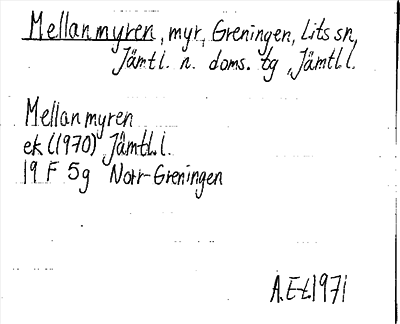 Mellanmyren, myr, Greningen, Lits sn,
Jämtl. n. doms. tg, Jämtl.l.
Mellanmyren
ek (1970) Jämtl.l.
19 F 5g Norr-Greningen
A.E-t.1971